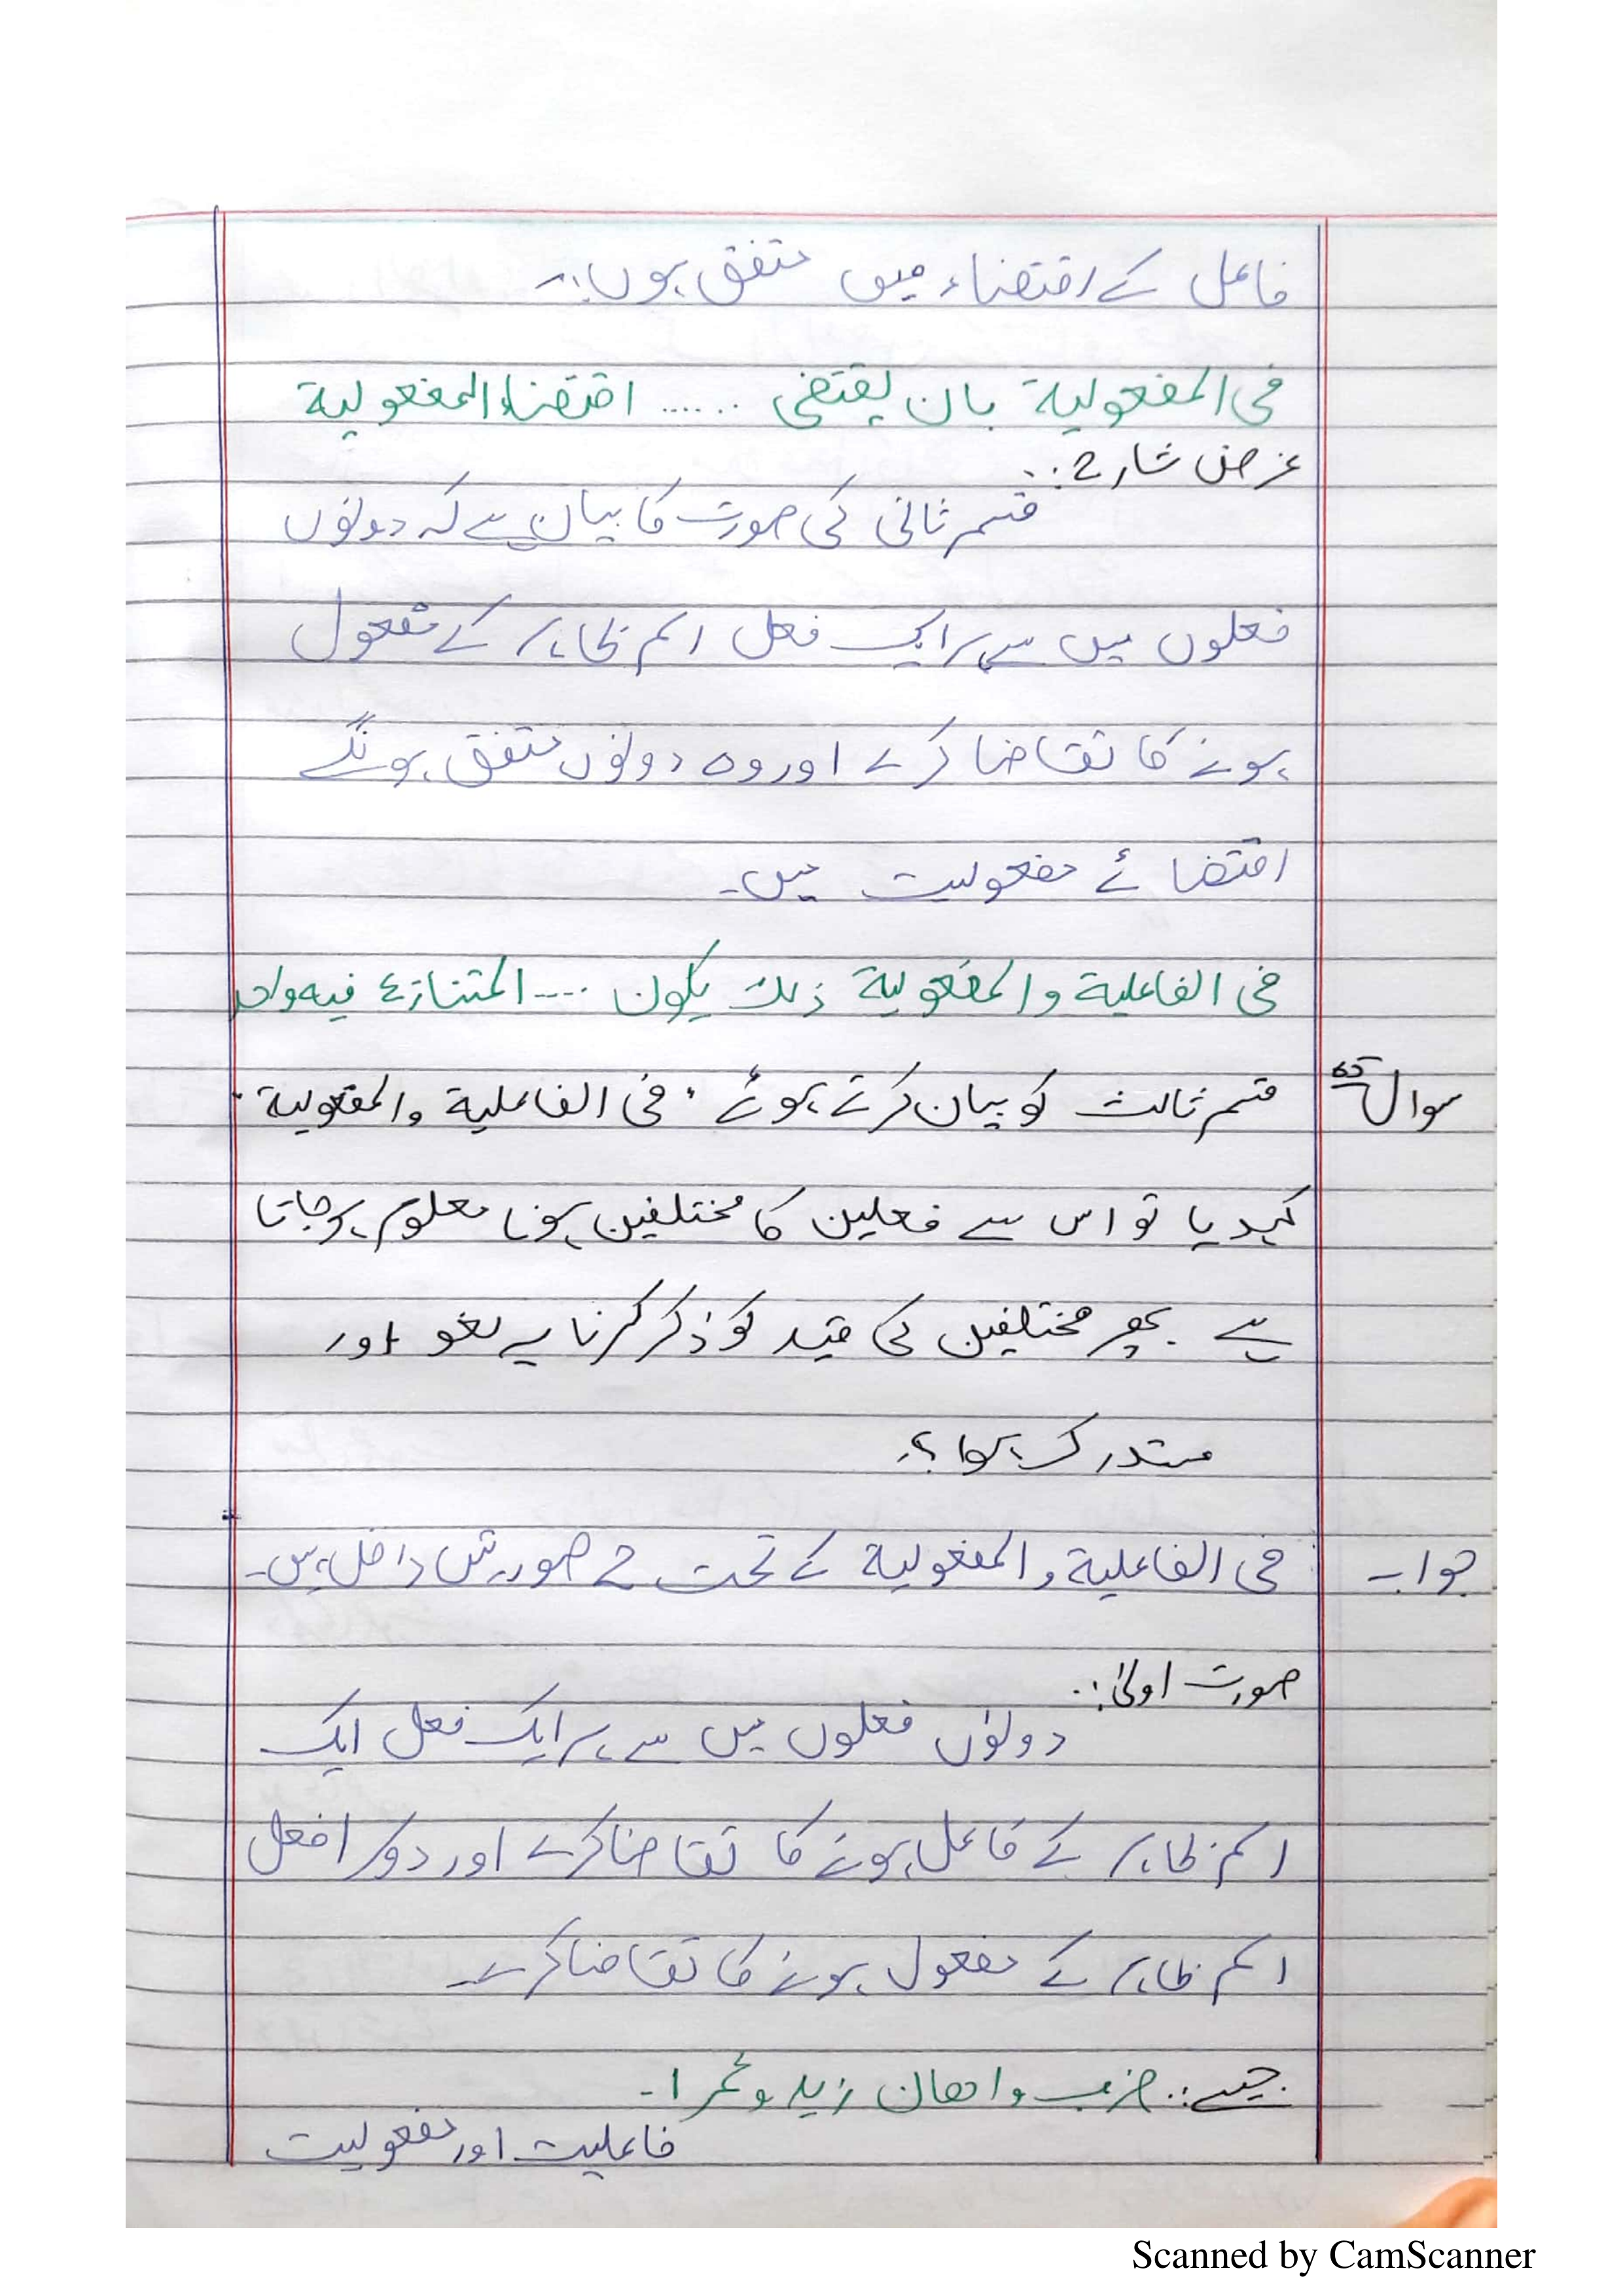 فاعل کے اقتضاء میں متفق ہوں:۔
فی المفعولیة بان یقتضی ...... اقتضاء المفعولیة
غرض شارح:.
قسم ثانی کی صورت کا بیان ہے کہ دونوں
فعلوں میں سے ہر ایک فعل اسم ظاہر کے مفعول
ہونے کا تقاضا کرے اور وہ دونوں متفق ہونگے
اقتضائے مفعولیت میں۔
فی الفاعلیة والمفعولیة ذلک یکون .... المتنازع فیه واحد
سوال قسم ثالث کو بیان کرتے ہوئے "فی الفاعلیة والمفعولیة"
کہدیا تو اس سے فعلین کا مختلفین ہونا معلوم ہو جاتا
ہے پھر مختلفین کی قید کو ذکر کرنا یہ لغو اور
مستدرک ہوا؟
جواب فی الفاعلیة والمفعولیة کے تحت ۲ صورتیں داخل ہیں۔
صورت اولیٰ:.
دونوں فعلوں میں سے ہر ایک فعل ایک
اسم ظاہر کے فاعل ہونے کا تقاضا کرے اور دوسرا فعل
اسم ظاہر کے مفعول ہونے کا تقاضا کرے۔
جیسے:. ضرب واهان زید وعمرا۔
فاعلیت اور مفعولیت
Scanned by CamScanner